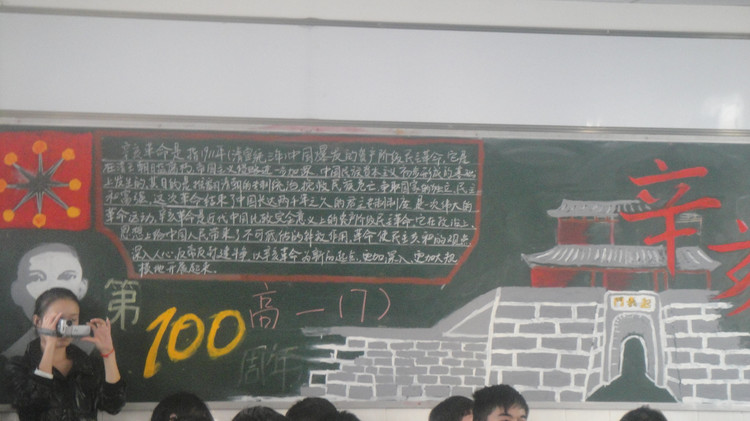 辛亥革命是指1911年(清宣统三年)中国爆发的资产阶级民主革命.它是
在清王朝日益腐朽、帝国主义侵略进一步加深、中国民族资本主义初步成长的基础
上发生的.其目的是推翻清朝的专制统治,挽救民族危亡,争取国家的独立、民主
和富强.这次革命结束了中国长达两千年之久的君主专制制度.是一次伟大的
革命运动.辛亥革命是近代中国比较完全意义上的资产阶级民主革命.它在政治上、
思想上给中国人民带来了不可低估的解放作用.革命使民主共和的观念
深入人心.反帝反封建斗争,以辛亥革命为新的起点,更加深入、更加大规
模地开展起来.
辛亥
第100周年
高一(7)